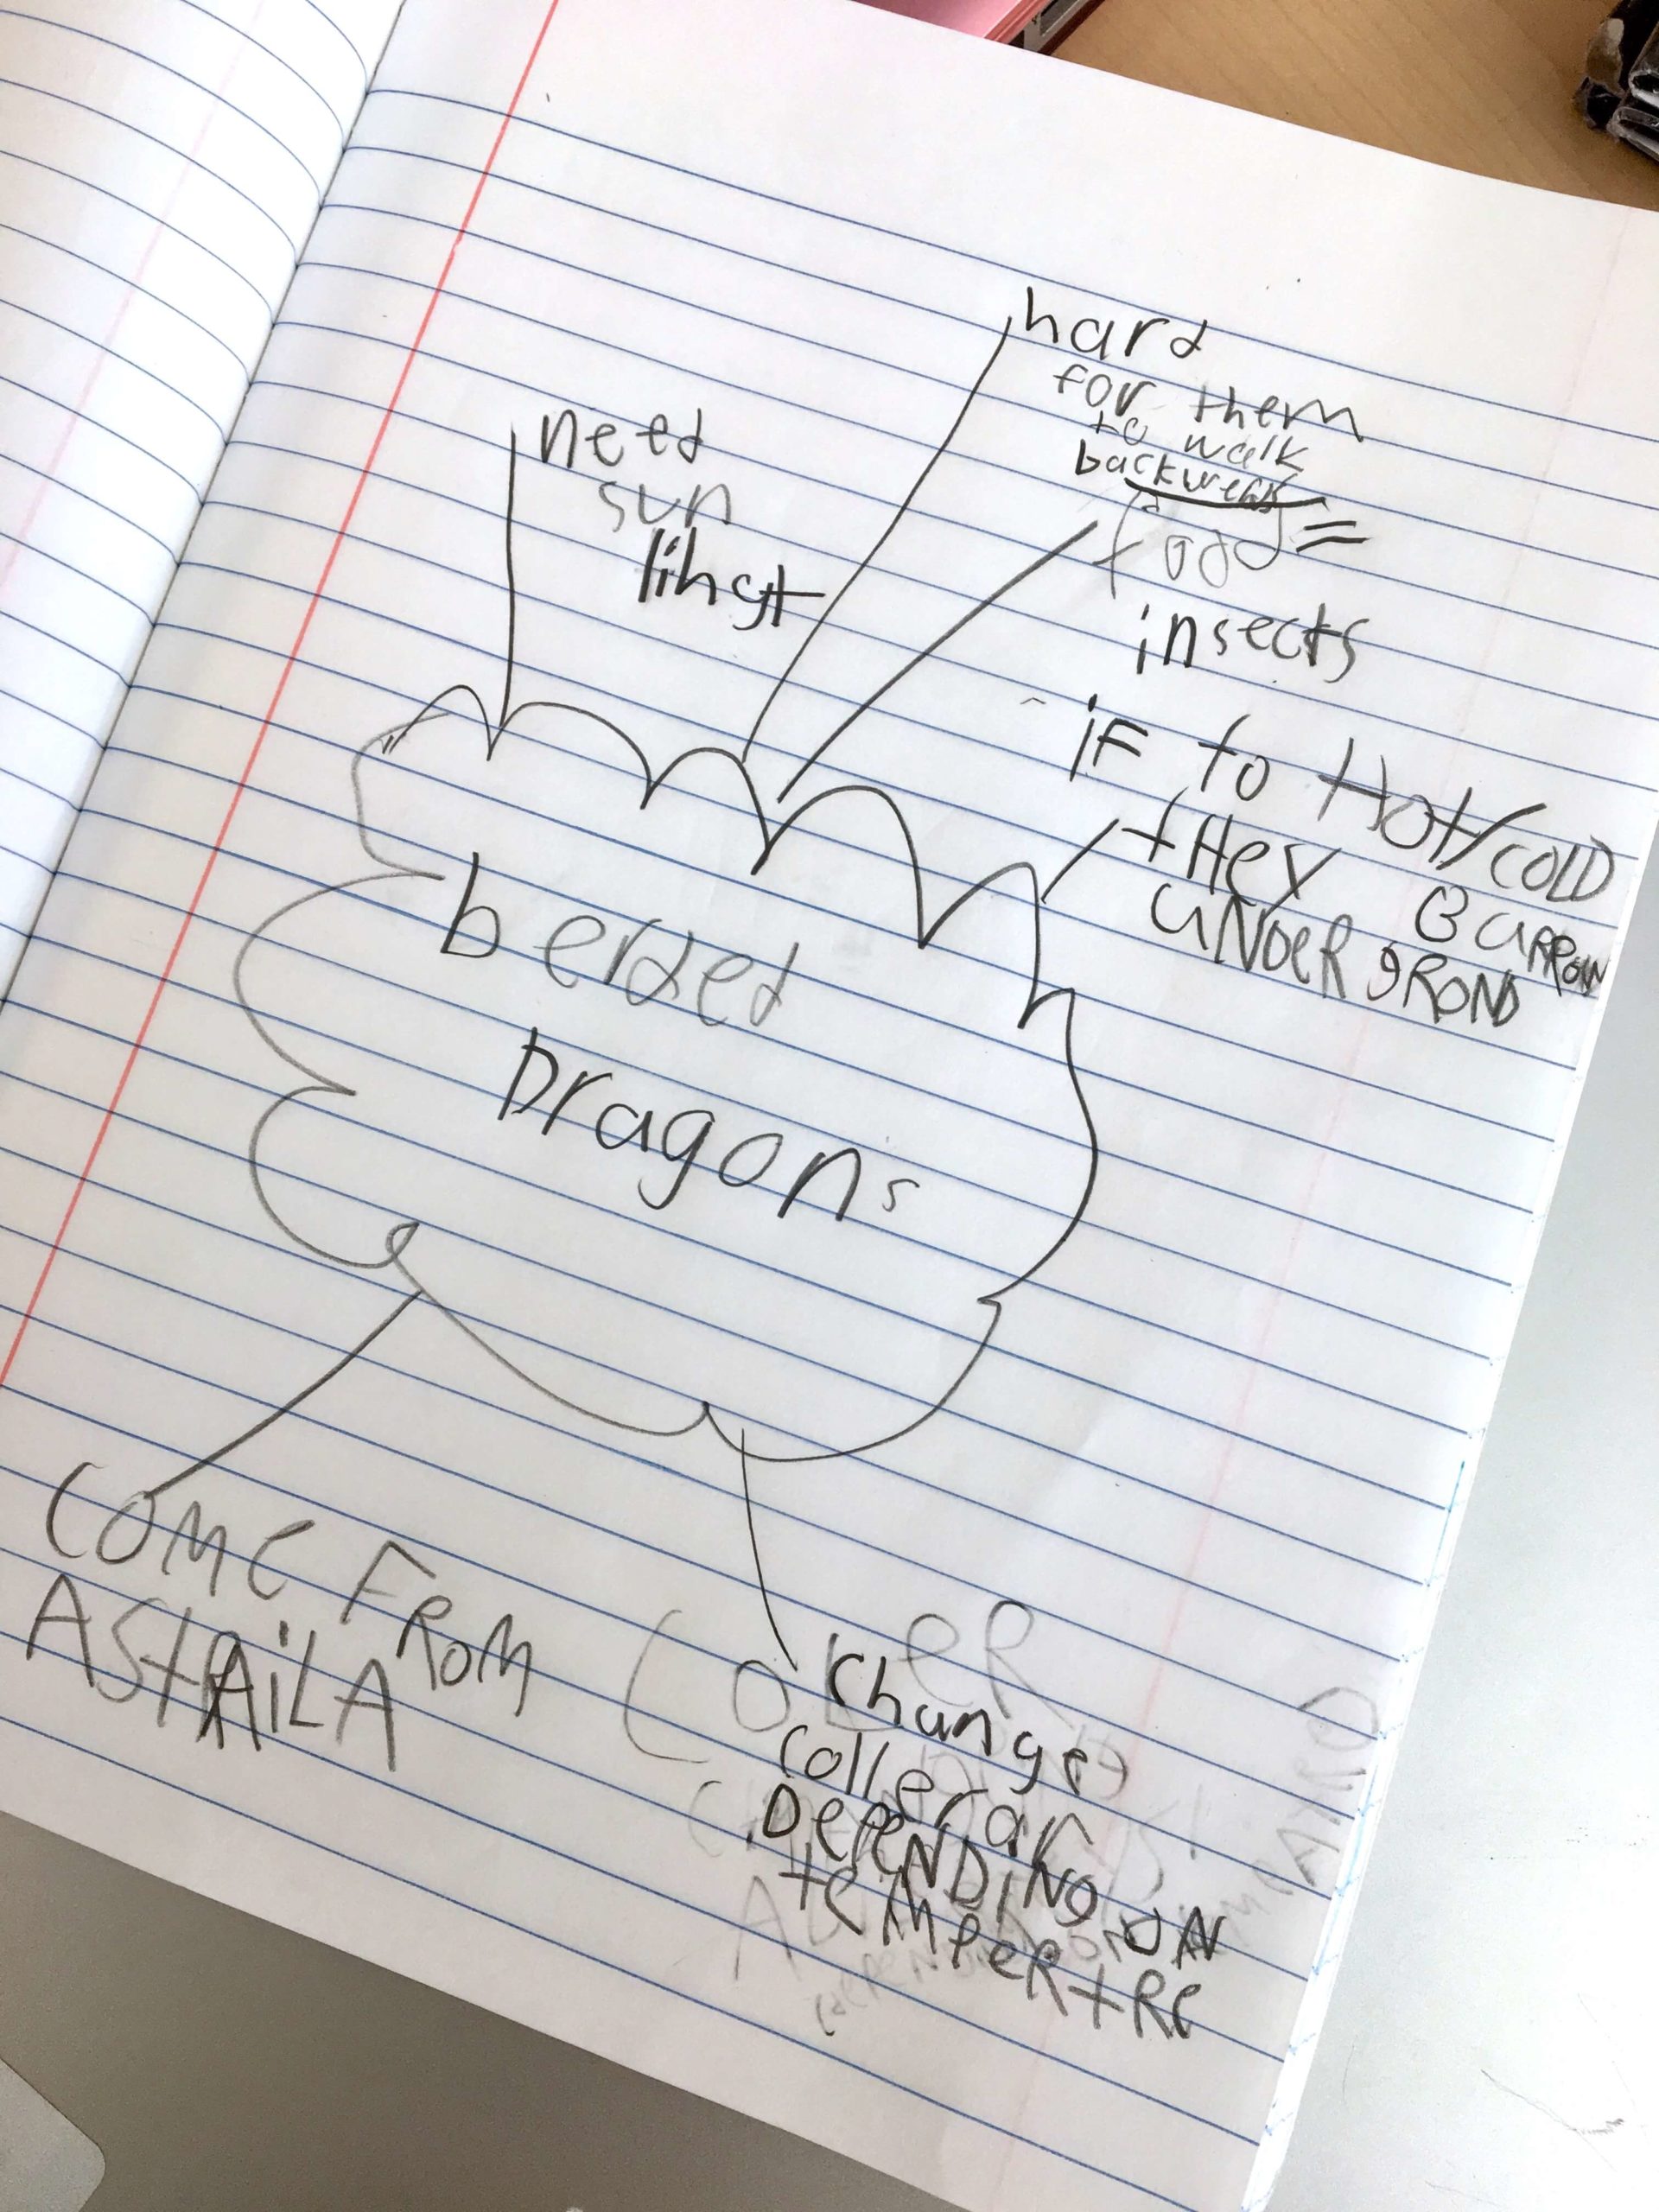 hard
for them
to walk
need
sun
lihgt
food =
insects
if to Hot/COLD
tHey BURROW
UNDER gROND
berded
Dragons
COME FROM
AStRAiLA
Change
coller
DePENDiNG ON
teMPeRtRe